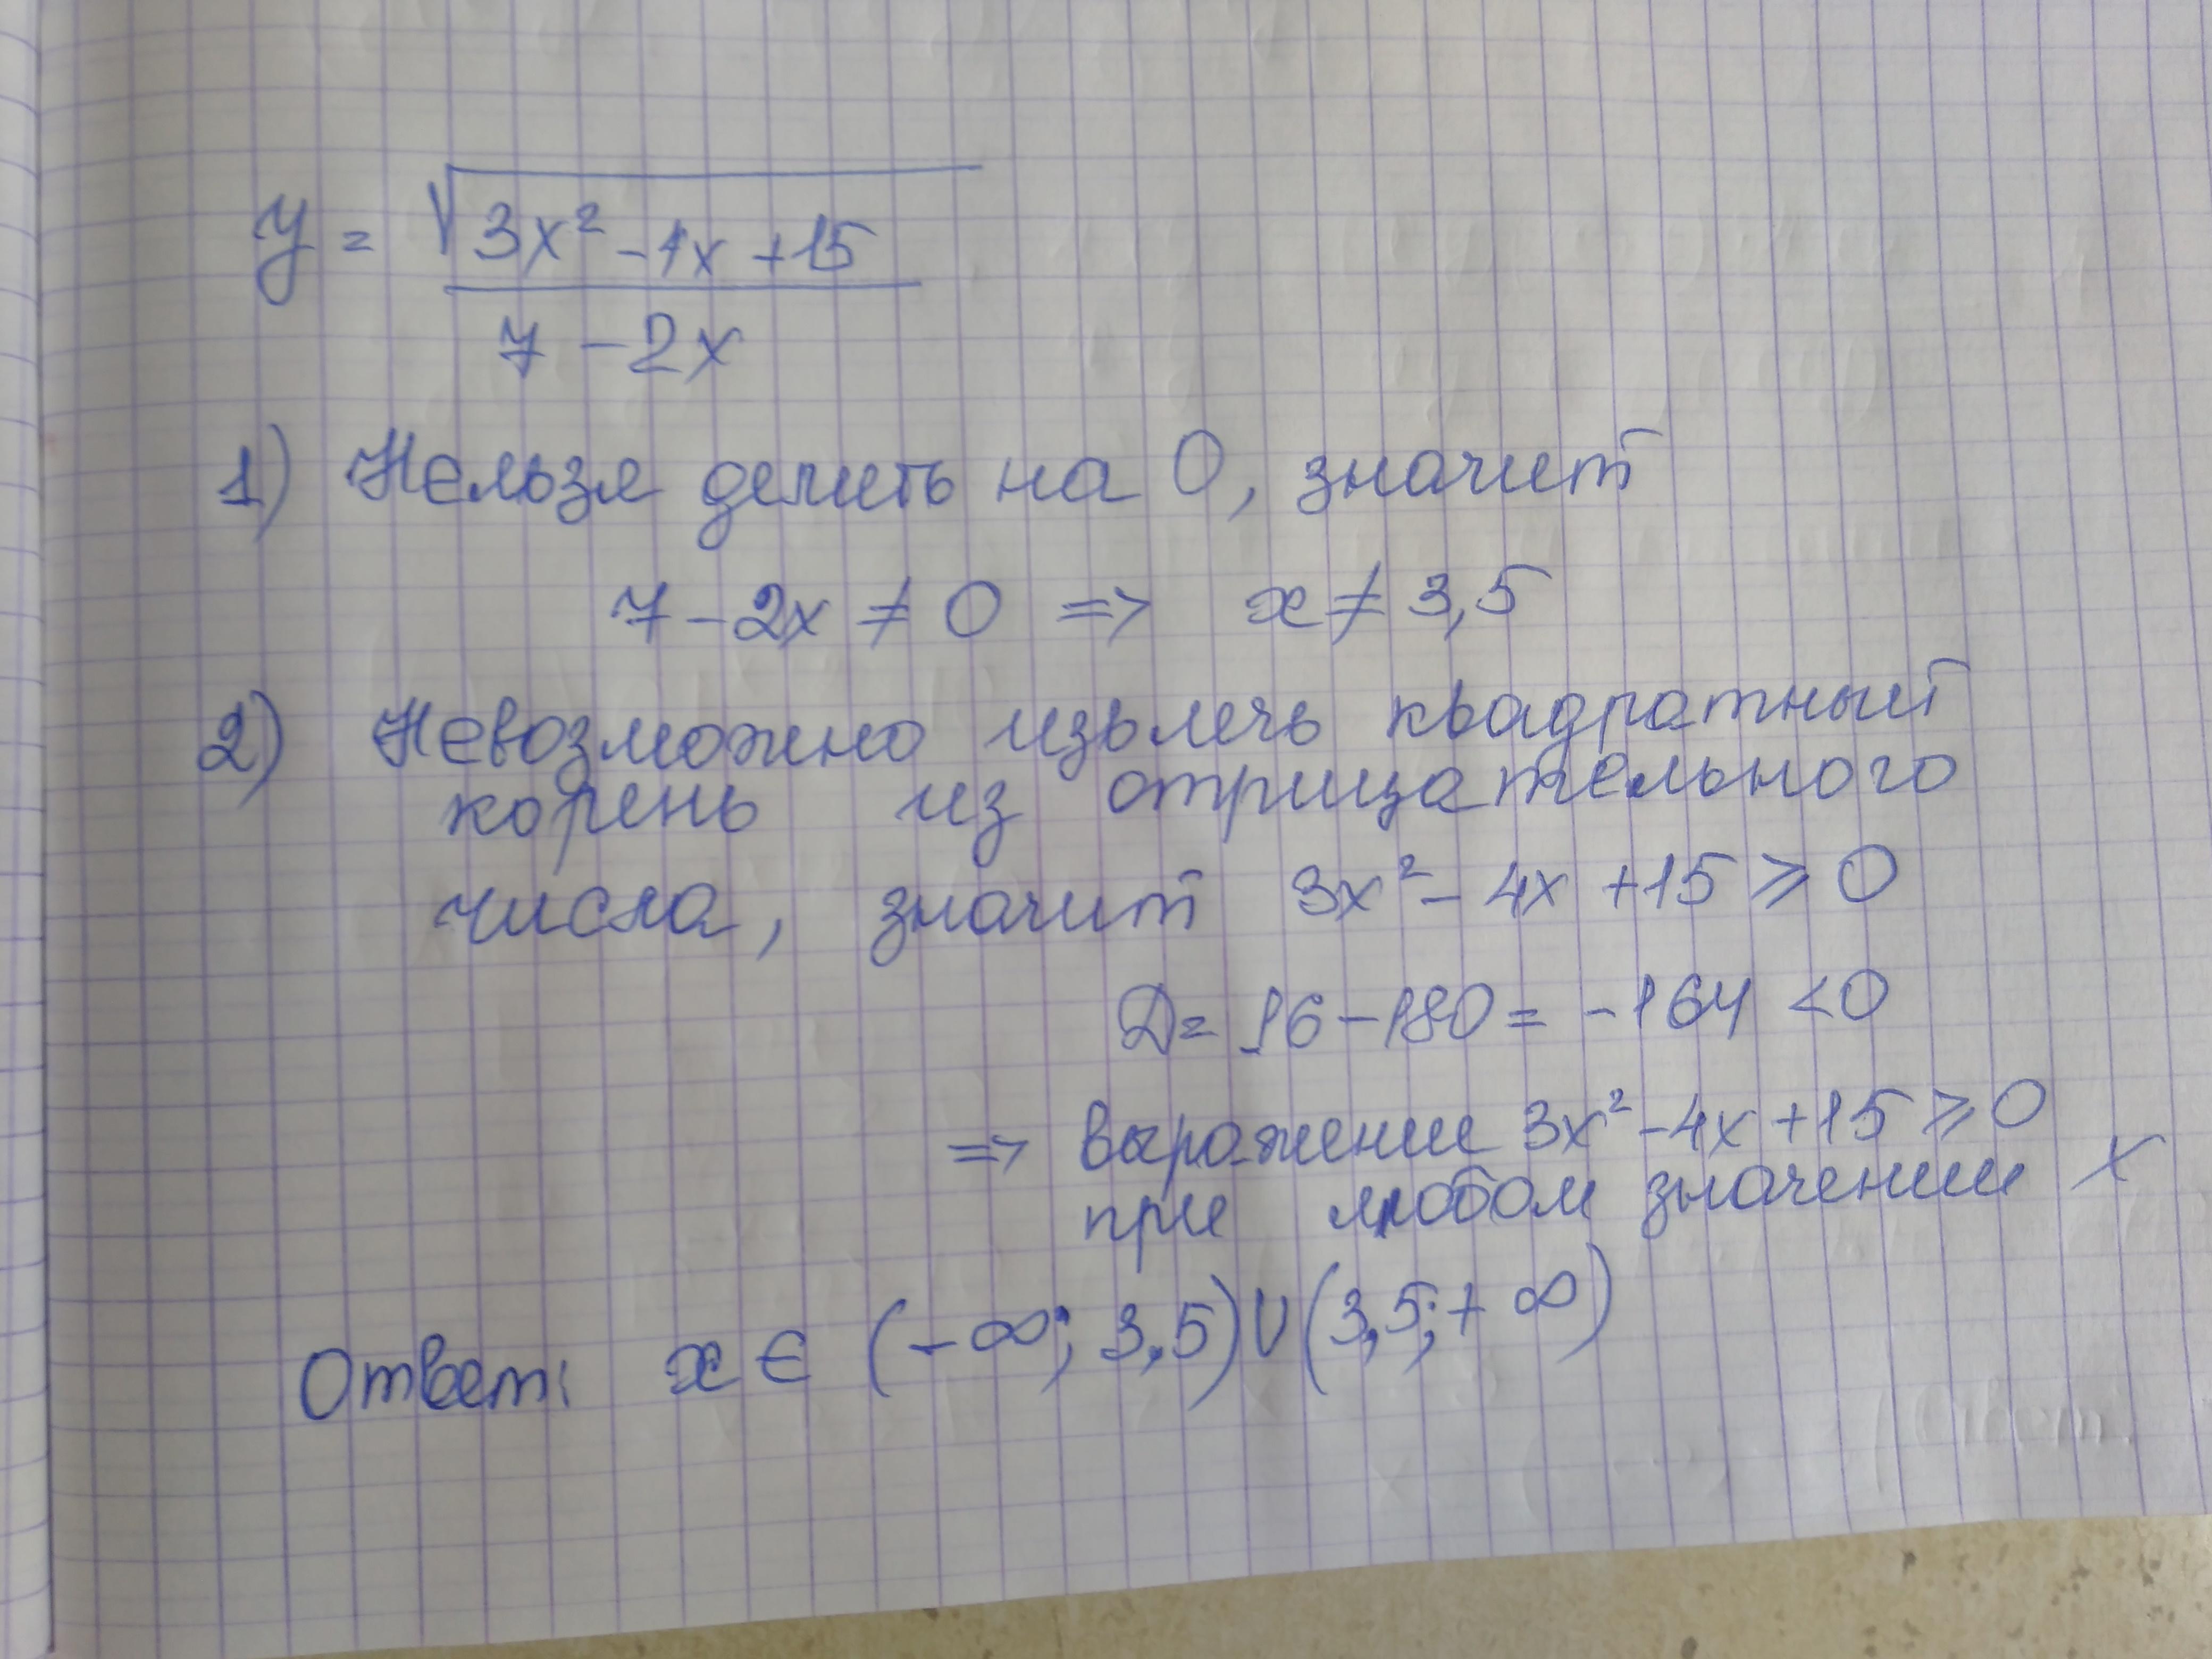 y = √3x² - 4x + 15
7 - 2x
1) Нельзя делить на 0, значит
7 - 2x ≠ 0 => x ≠ 3,5
2) Невозможно извлечь квадратный
корень из отрицательного
числа, значит 3x² - 4x + 15 ≥ 0
D = 16 - 180 = -164 < 0
=> выражение 3x² - 4x + 15 ≥ 0
при любом значении x
Ответ: x ∈ (-∞; 3,5) ∪ (3,5; + ∞)